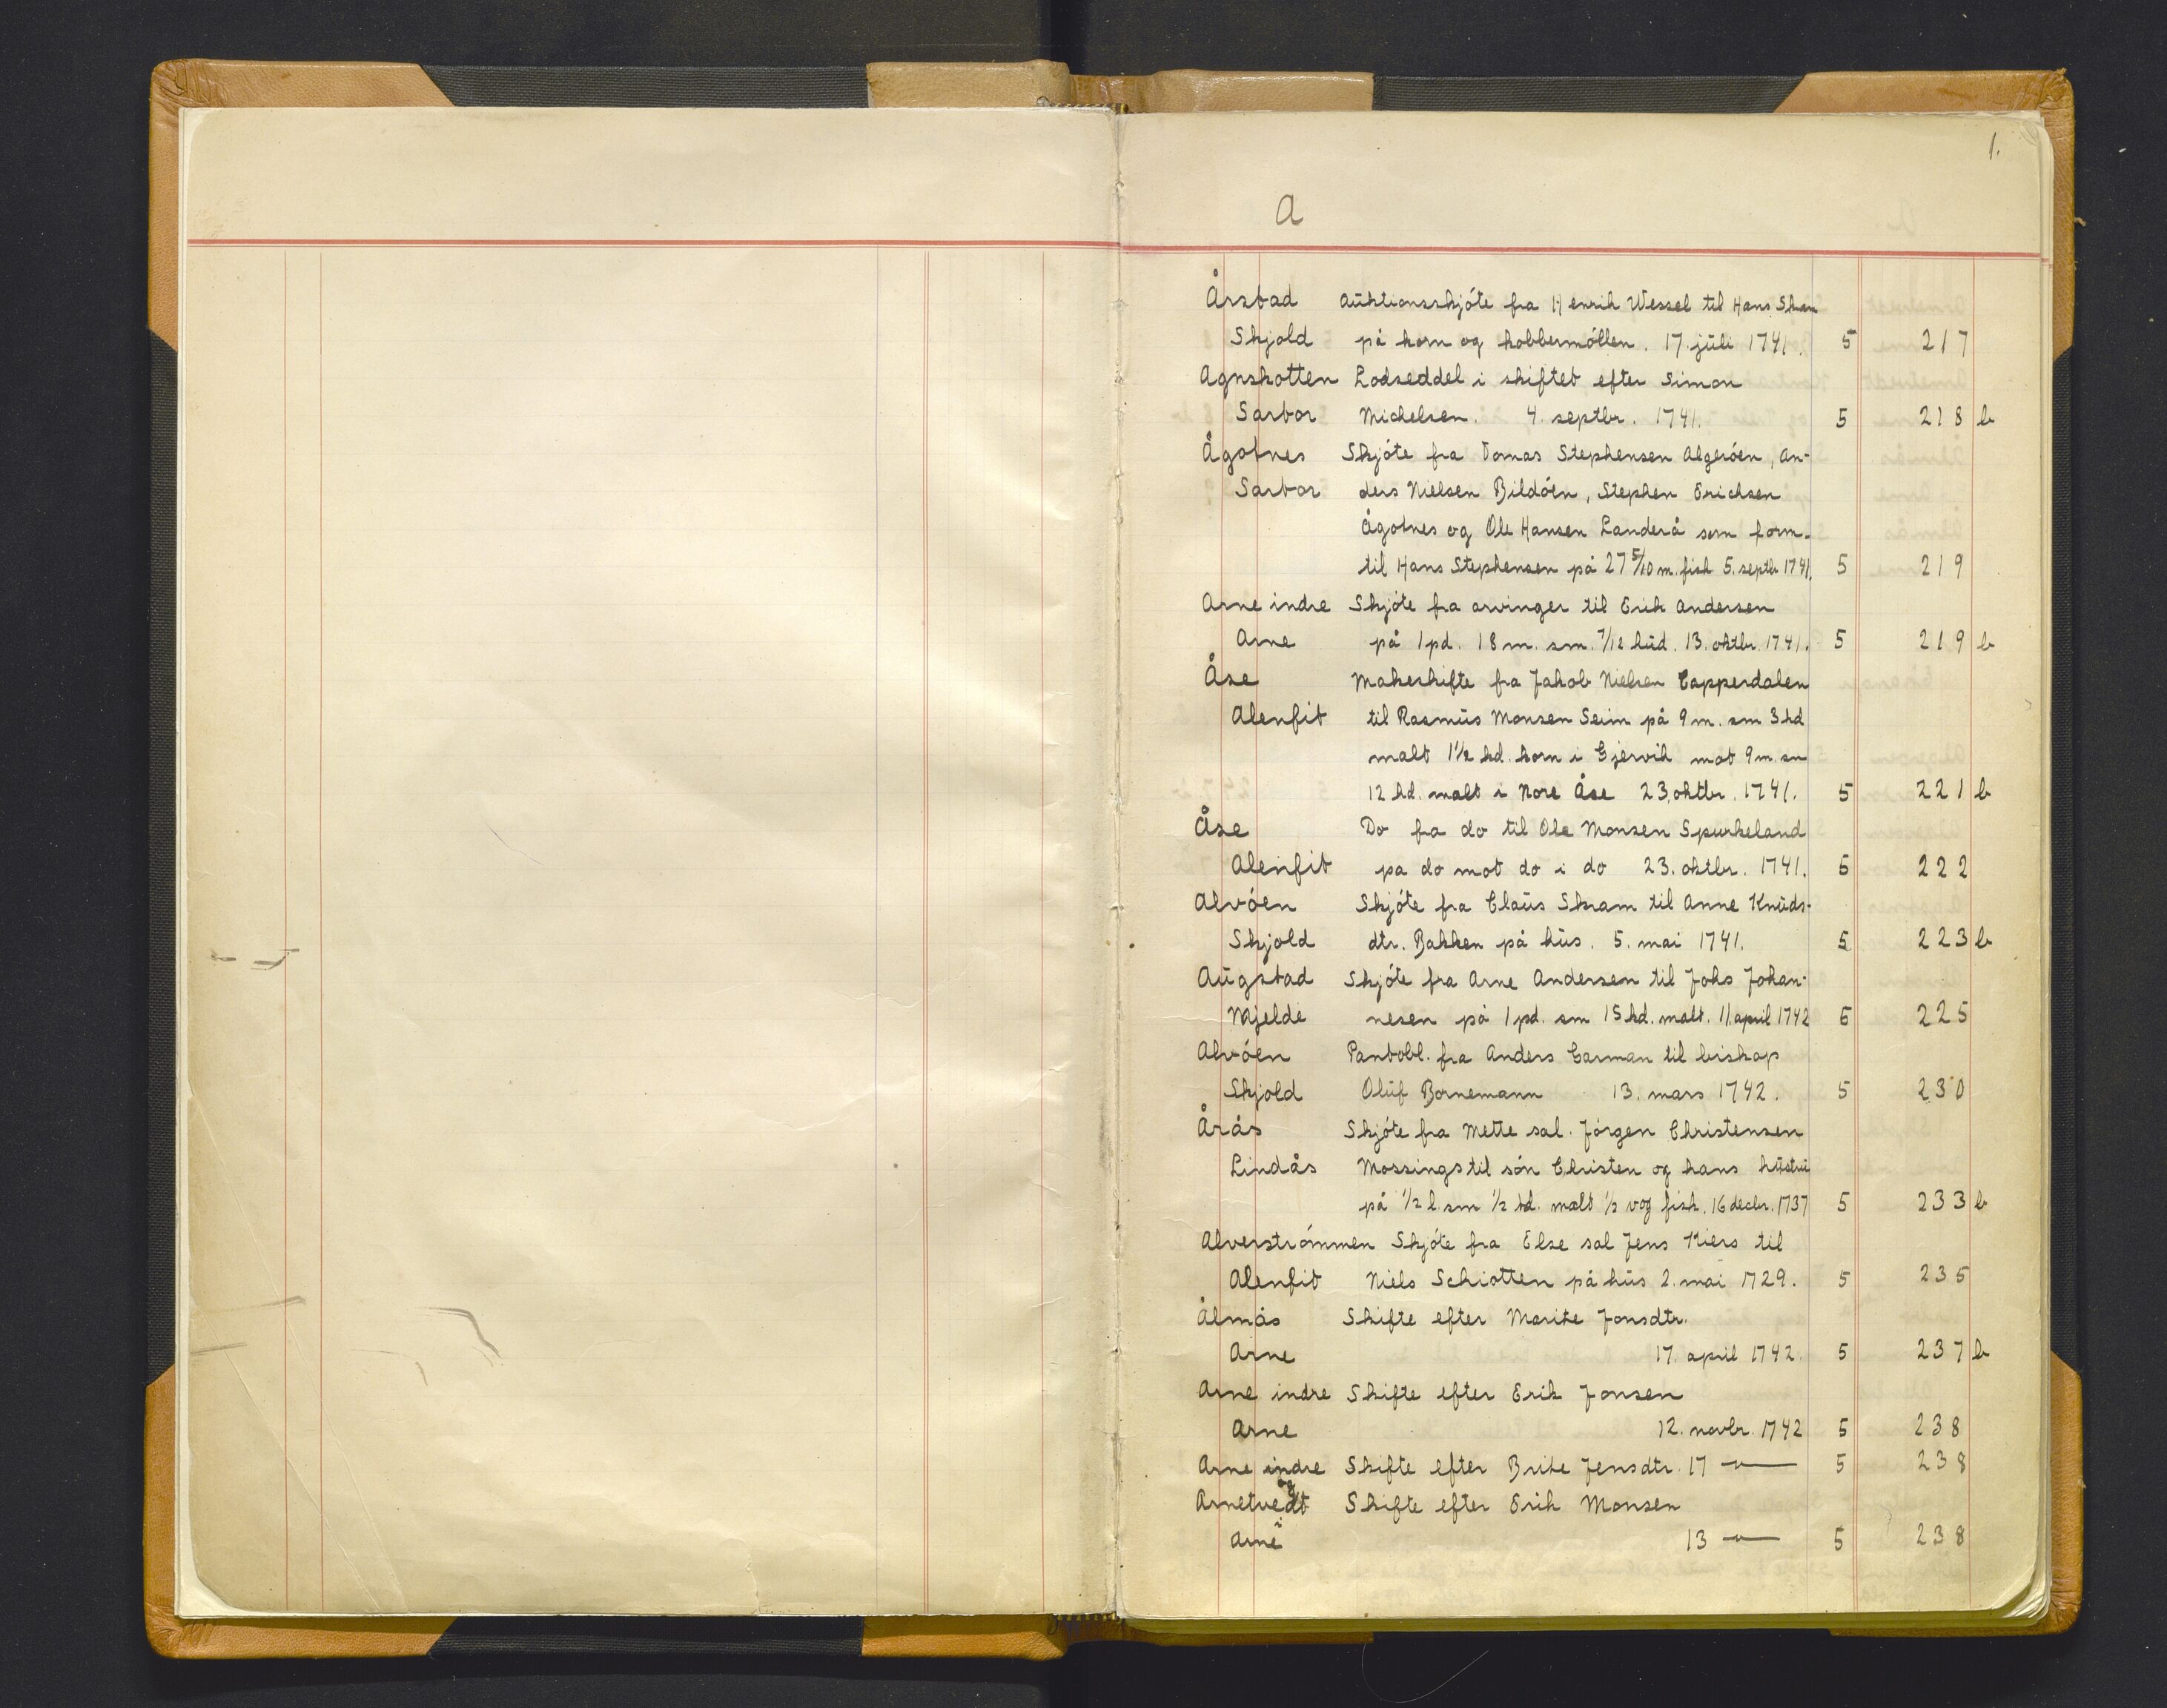 1.
A
Årstad Auktionsskjöte fra Henrik Wessel til Hans Skram
Skjold på korn og kobbermöllen. 17. juli 1741. 5 217
Agnskotten Lodseddel i skiftet efter Simon
Sartor Michelsen. 4. septbr. 1741. 5 218 b
Ågotnes Skjöte fra Tomas Stephensen Algeröen, An-
Sartor ders Nielsen Bildöen, Stephen Erichsen
Ågotnes og Ole Hansen Landerå som form.
til Hans Stephensen på 27 5/10 m. fisk 5. septbr 1741. 5 219
Arne indre Skjöte fra arvinger til Erik Andersen
Arne på 1 pd. 18 m. sm. 7/12 hud. 13. oktbr. 1741. 5 219 b
Åse Makeskifte fra Jakob Nielsen Capperdalen
Alenfit til Rasmus Monsen Seim på 9 m. sm 3 hd
malt 1 1/2 hd. korn i Gjervik mot 9 m. sm
12 hd. malt i Nore Åse 23. oktbr. 1741. 5 221 b
Åse Do fra do til Ole Monsen Spurkeland
Alenfit pa do mot do i do 23. oktbr. 1741. 5 222
Alvöen Skjöte fra Claus Skram til Anne Knuds-
Skjold dtr. Bakken på hus. 5. mai 1741. 5 223 b
Augstad Skjöte fra Arne Andersen til Johs Johan-
Mjelde nesen på 1 pd. sm 15 hd. malt. 11. april 1742 5 225
Alvöen Pantobl. fra Anders Garman til biskop
Skjold Oluf Bornemann 13. mars 1742. 5 230
Årås Skjöte fra Mette sal. Jörgen Christensen
Lindås Mossings til sön Christen og hans hustru
på 1/2 l. sm 1/2 hd. malt 1/2 vog fisk. 16 decbr. 1737 5 233 b
Alverströmmen Skjöte fra Else sal Jens Kiers til
Alenfit Niels Schiotten på hus 2. mai 1729. 5 235
Ålmås Skifte efter Marite Jonsdtr.
Arne 17. april 1742. 5 237 b
Arne indre Skifte efter Erik Jonsen
Arne 12. novbr. 1742 5 238
Arne indre Skifte efter Brite Jensdtr. 17 —"— 5 238
og
Arnetvedt Skifte efter Erik Monsen
Arne 13 —"— 5 238